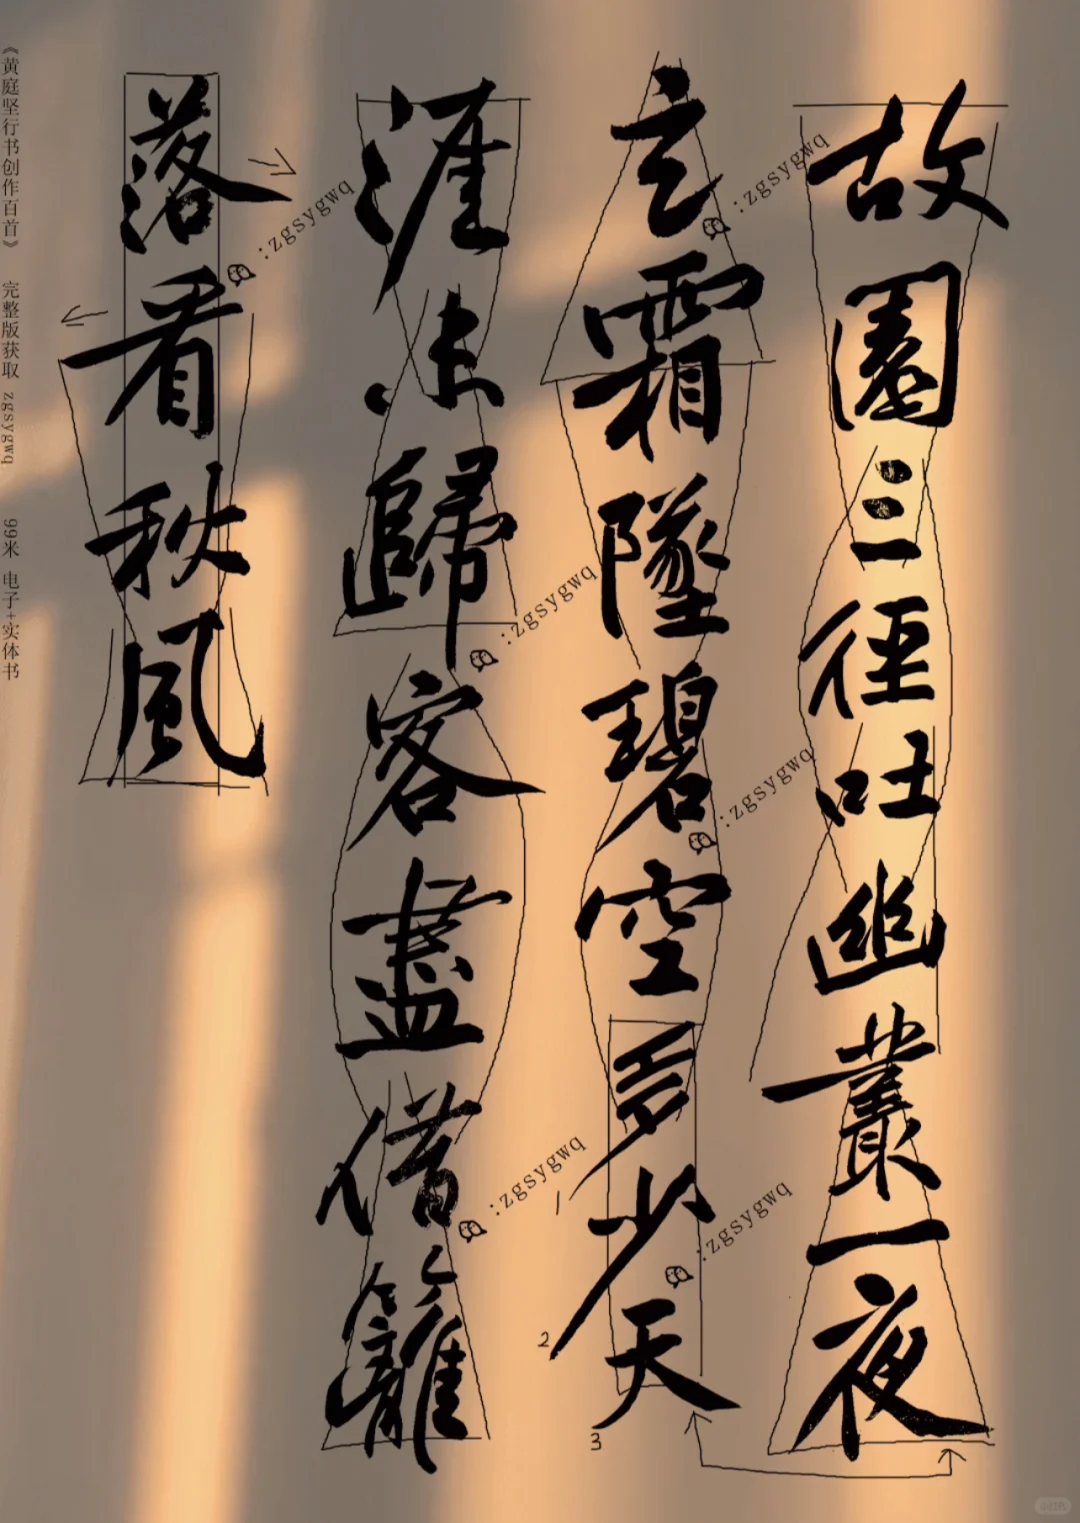 故園三徑吐幽叢一夜
玄霜墜碧空多少天
涯未歸客盡借籬
落看秋風
《黄庭坚行书创作百首》 完整版获取 zgsygwq 99米 电子+实体书
:zgsygwq
:zgsygwq
:zgsygwq
:zgsygwq
:zgsygwq
:zgsygwq
1
2
3